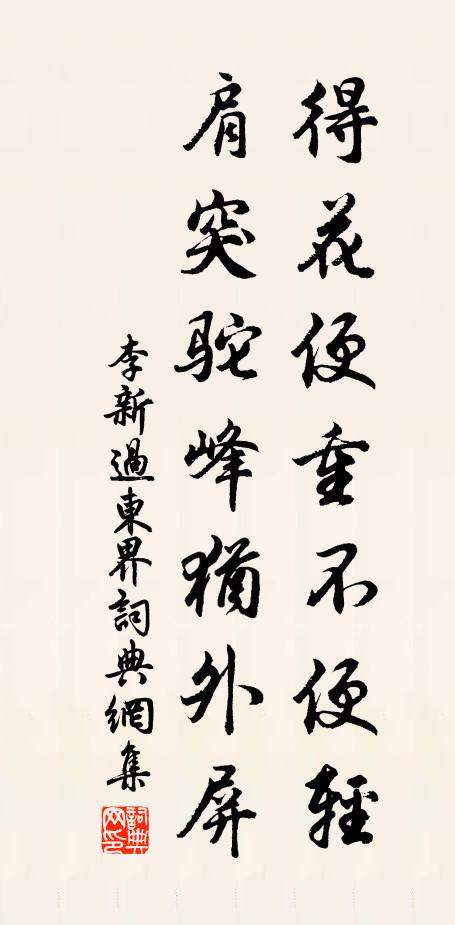 得花便重不便輕
肩突駝峰猶外屏
李新過東界詞典網集
詞典
网印